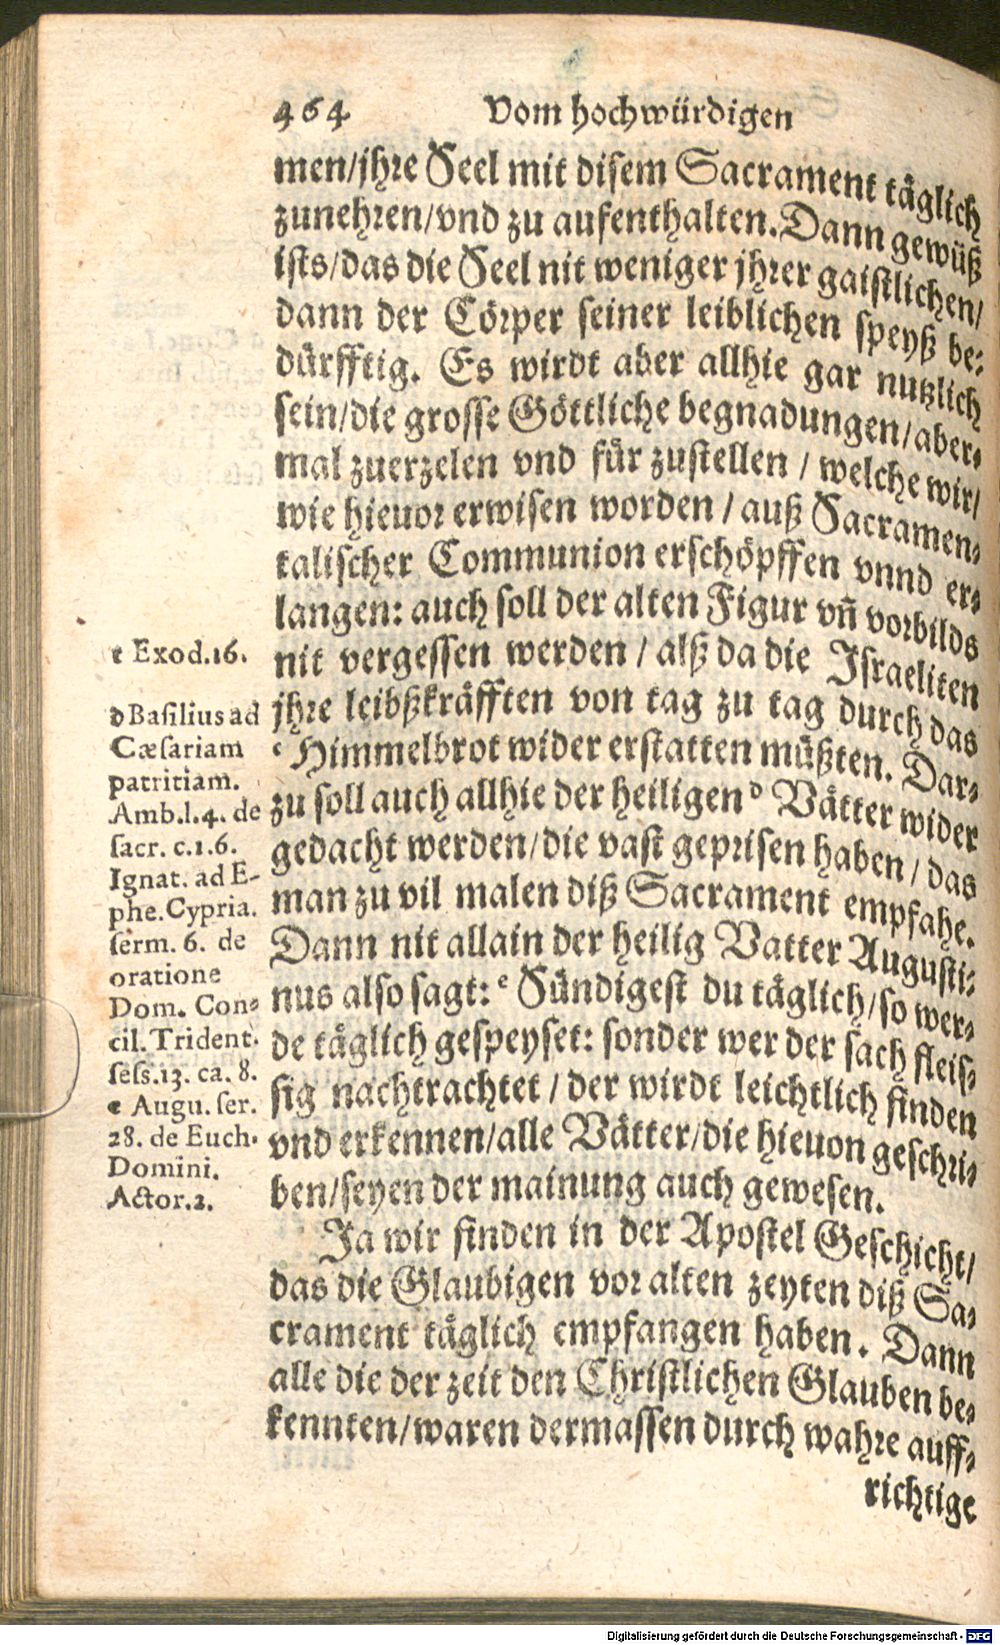 464 Vom hochwürdigen
men/jhre Seel mit disem Sacrament täglich
zunehren/vnd zu aufenthalten. Dann gewüß
ists/das die Seel nit weniger jhrer gaistlichen/
dann der Cörper seiner leiblichen speyß be⸗
dürfftig. Es wirdt aber allhie gar nutzlich
sein/die grosse Göttliche begnadungen/aber⸗
mal zuerzelen vnd für zustellen / welche wir/
wie hieuor erwisen worden / auß Sacramen⸗
talischer Communion erschöpffen vnnd er⸗
langen: auch soll der alten Figur vñ vorbilds
nit vergessen werden / alß da die Israeliten
jhre leibßkräfften von tag zu tag durch das
c Himmelbrot wider erstatten müßten. Dar⸗
zu soll auch allhie der heiligen d Vätter wider
gedacht werden/die vast geprisen haben / das
man zu vil malen diß Sacrament empfahe.
Dann nit allain der heilig Vatter Augusti⸗
nus also sagt: e Sündigest du täglich/so wer⸗
de täglich gespeyset: sonder wer der sach fleis⸗
sig nachtrachtet / der wirdt leichtlich finden
vnd erkennen/alle Vätter/die hieuon geschri⸗
ben/seyen der mainung auch gewesen.
Ja wir finden in der Apostel Geschicht/
das die Glaubigen vor alten zeyten diß Sa⸗
crament täglich empfangen haben. Dann
alle die der zeit den Christlichen Glauben be⸗
kennten/waren dermassen durch wahre auff⸗
richtige
c Exod.16.
d Basilius ad
Cæsariam
patritiam.
Amb.l.4. de
sacr. c.1.6.
Ignat. ad E-
phe. Cypria.
serm. 6. de
oratione
Dom. Con⸗
cil. Trident.
sess.13. ca. 8.
e Augu. ser.
28. de Euch.
Domini.
Actor.2.
Digitalisierung gefördert durch die Deutsche Forschungsgemeinschaft - DFG